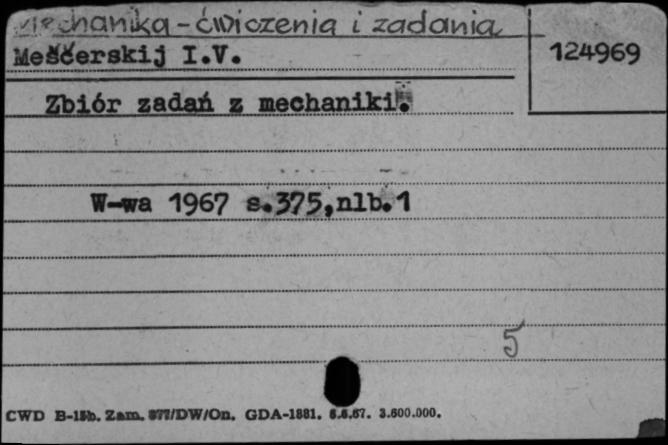 Mechanika - ćwiczenia i zadania
Meščerskij I.V.
124969
Zbiór zadań z mechaniki.
W-wa 1967 s.375,nlb.1
5
CWD B-15b. Zam. 877/DW/On. GDA-1881. 6.6.67. 3.600.000.